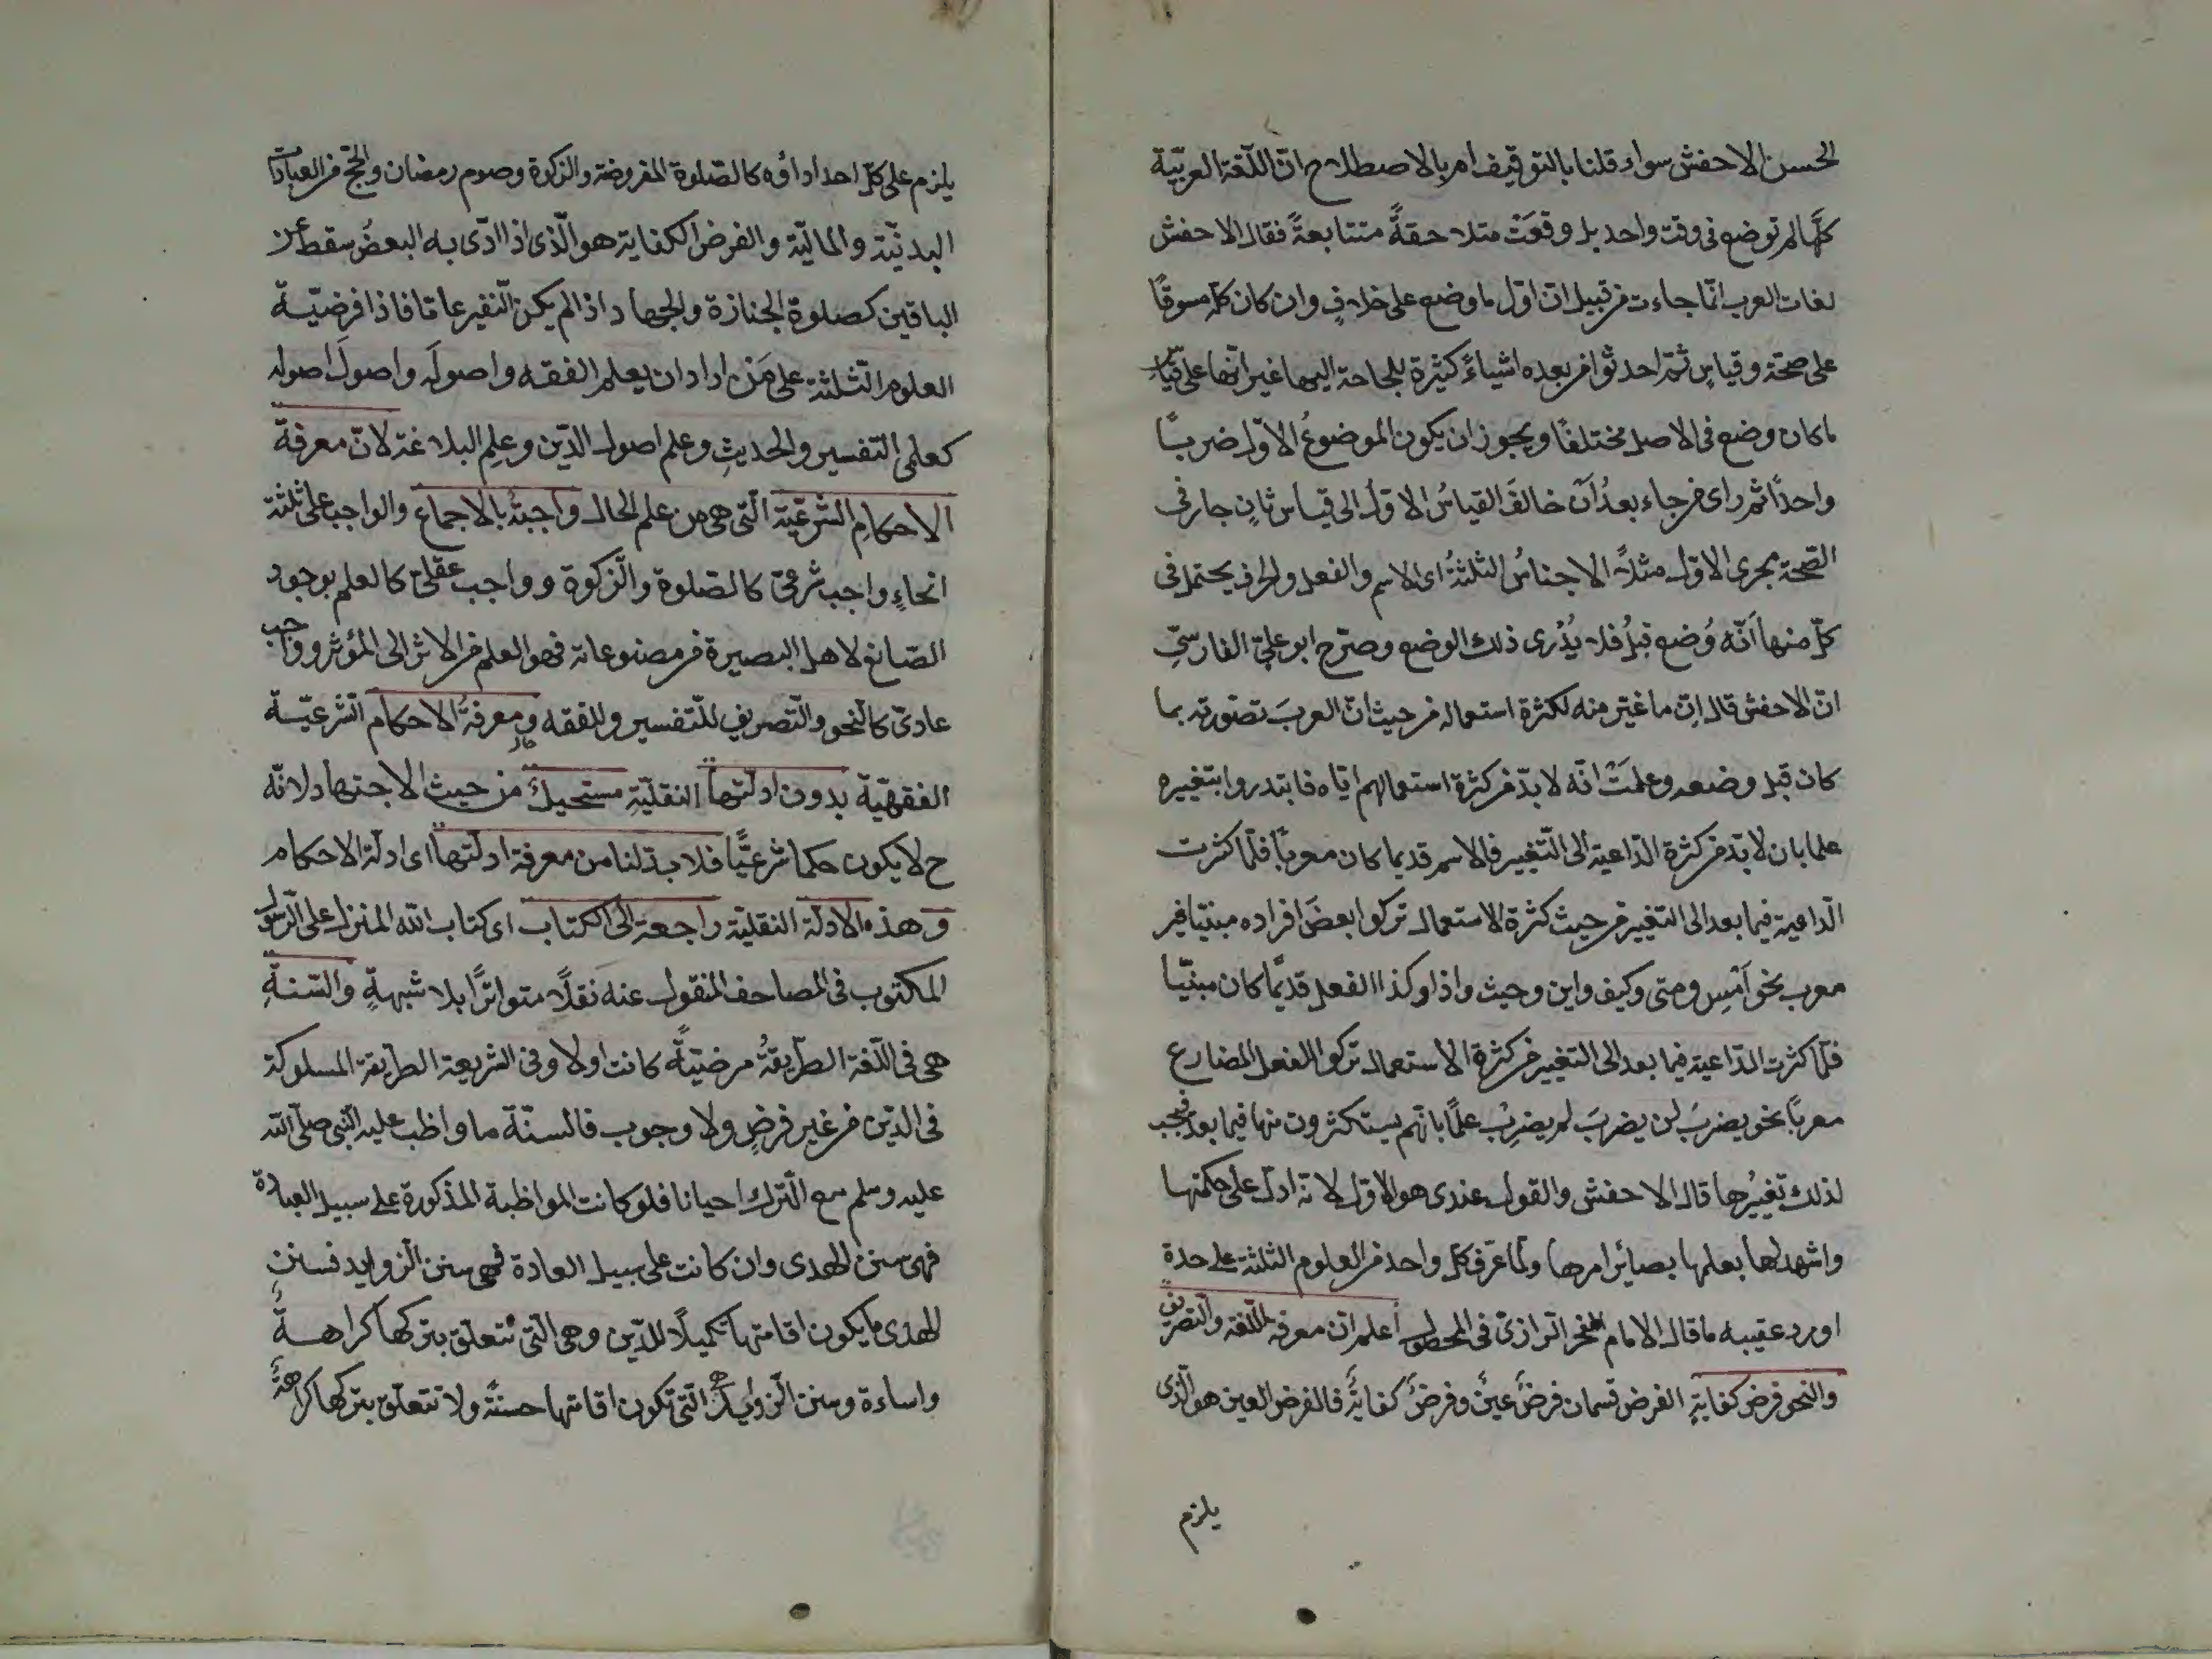 الحسن الاحفش سواء قلنا بالتوقيف ام بالاصطلاح ان اللّغة العربيّة
كلّها لم توضع فى وقت واحد بل وقعَتْ متلاحقةً متتابعةً فقال الاحفش
لغات العرب انّما جاءت من قبيل انّ اوّل ما وضع على خلافٍ وان كان كلّه مسوقًا
على صحّة وقياسٍ ثمّ احدثوا من بعده اشياءً كثيرة للحاجة اليها غير انّها على قياس
ما كان وضع فى الاصل مختلفًا ويجوز ان يكون الموضوعُ الاوّل ضربًا
واحدًا ثمّ راى من جاء بعدُ اَنْ خالفَ القياسُ الاوّلُ الى قياس ثانٍ جارٍ فى
الصّحّة مجرى الاوّل مثلاً الاجناسُ الثلثةُ اى الاسم والفعل والحرف يحتمل فى
كلّ منها اَنّه وُضع قبلُ فلا يُدْرى ذلك الوضع وصرّح ابو علىّ الفارسىّ
انّ الاحفش قال اِنّ ما غيّر منه لكثرة استعماله من حيث انّ العربَ تصوّرته بما
كان قبل وضعه وعلمَتْ انّه لا بدّ من كثرة استعمالهم ايّاه فابتدروا بتغييره
علما بان لا بدّ من كثرة الدّاعية الى التّغيير فالاسم قديما كان معربًا فلمّا كثرت
الدّاعية فيما بعد الى التغيير من حيث كثرة الاستعمال تركوا بعضَ افراده مبنيّا غير
معرب نحو اَمْسِ ومتى وكيف واين وحيث واذا وكذا الفعل قديمًا كان مبنيّا
فلمّا كثرت الدّاعية فيما بعد الى التغيير من كثرة الاستعمال تركوا الفعل المضارع
معربًا نحو يضربُ لن يضربَ لم يضربْ علمًا بانّهم يستكثرون منها فيما بعد فيجب
لذلك تغييرُها قال الاحفش والقول عندى هو الاوّل لانّه ادلّ على حكمتها
واشهد لها بعلمها بصائر امرها ولمّا عرّف كلّ واحد من العلوم الثلثة على حدة
اورد عقيبه ما قال الامام الفخر الرازىّ فى المحصول اعلم انّ معرفة اللّغة والتصريف
والنحو فرض كفايةٍ الفرض قسمان فرضُ عينٍ وفرضُ كفايةٍ فالفرض العين هو الّذى
يلزم
يلزم على كلّ احد اداؤه كالصّلوة المفروضة والزكوة وصوم رمضان والحجّ من العبادات
البدنيّة والماليّة والفرض الكفاية هو الّذى اذا ادّى به البعضُ سقط عن
الباقين كصلوة الجنازة والجهاد اذا لم يكن النّفير عامّا فاذا فرضيّة
العلوم الثّلثة على مَن اراد ان يعلم الفقه واصولَه واصولَ اصوله
كعلمى التفسير والحديثِ وعلم اصول الدّين وعلم البلاغة لانّ معرفة
الاحكامِ الشرعيّة الّتى هى من علم الحال واجبةٌ بالاجماع والواجب على ثلثة
انحاءٍ واجب شرعىّ كالصّلوة والزّكوة وواجب عقلىّ كالعلم بوجود
الصّانع لاهل البصيرة من مصنوعاته فهو العلم من الاثر الى المؤثر وواجب
عادىّ كالنحو والتّصريف للتّفسير وللفقه ومعرفةُ الاحكام الشّرعيّة
الفقهيّة بدون ادلّتها النقليّةِ مستحيلٌ من حيث الاجتهاد لانّه
ح لا يكون حكما شرعيًّا فلا بدّ لنا من معرفة ادلّتها اى ادلّة الاحكام
وهذه الادلّة النقليّة راجعة الى الكتاب اى كتاب اللّه المنزل على الرّسول
المكتوب فى المصاحف المنقول عنه نقلًا متواترًا بلا شبهةٍ والسّنةِ
هى فى اللّغة الطّريقةُ مرضيّةً كانت اولا وفى الشريعة الطّريقة المسلوكة
فى الدّين من غير فرضٍ ولا وجوب فالسنّة ما واظب عليه النّبى صلّى اللّه
عليه وسلم مع التّرك احيانا فلو كانت المواظبة المذكورة على سبيل العبادة
فهى سنن الهدى وان كانت على سبيل العادة فهى سنن الزوايد فسنن
الهدى ما يكون اقامتها تكميلًا للدّين وهى الّتى تتعلّق بتركها كراهةٌ
واساءة وسنن الزوايد هى الّتى تكون اقامتها حسنةً ولا تتعلّق بتركها كراهةٌ